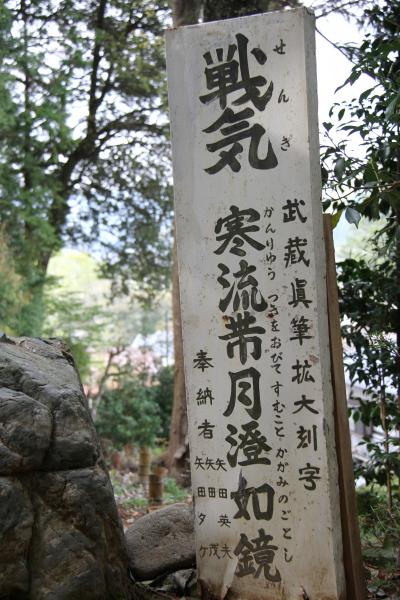 せんき
戦気
武蔵眞筆拡大刻字
かんりゅう つきをおびて すむこと かがみのごとし
寒流帯月澄如鏡
奉納者
矢田英夫
矢田茂
矢田夕ケ